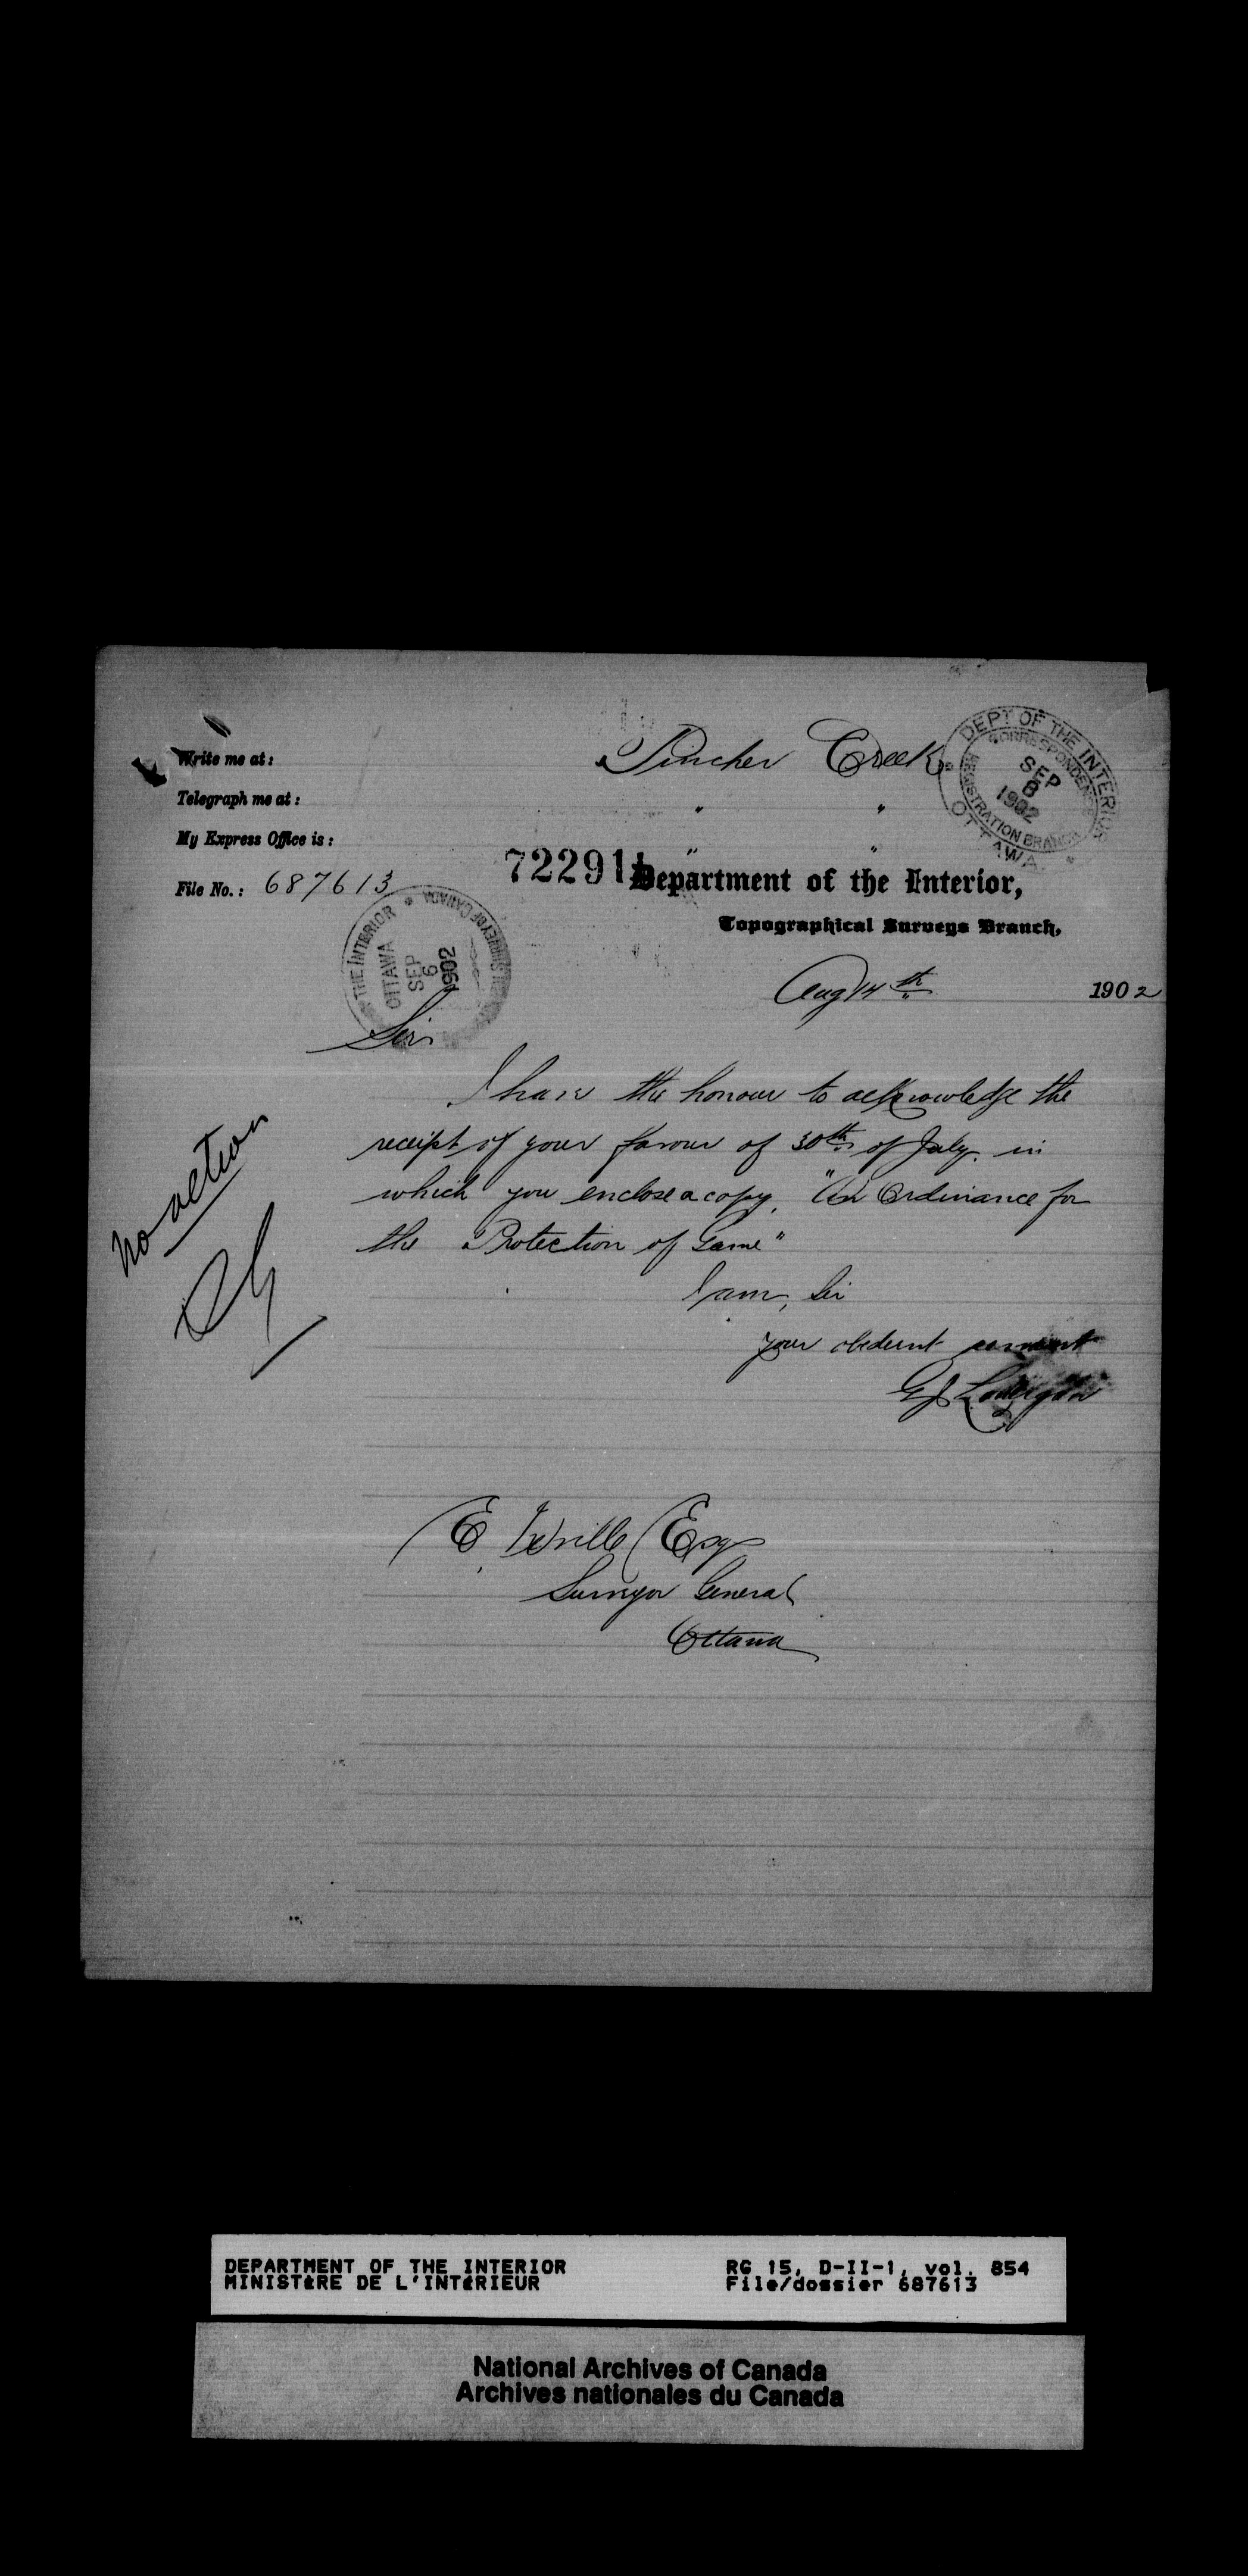 Write me at:
Pincher Creek
Telegraph me at:
" "
My Express Office is:
" "
File No.: 687613
72291
Department of the Interior,
Topographical Surveys Branch,
DEPT OF THE INTERIOR
CORRESPONDENCE
SEP
8
1902
REGISTRATION BRANCH
OTTAWA
THE INTERIOR
OTTAWA
SEP
6
1902
SURVEY OF CANADA
Aug 14th 1902
Sir
I have the honour to acknowledge the
receipt of your favour of 30th of July. in
which you enclose a copy. "An Ordinance for
the Protection of Game"
I am, Sir
your obedient servant
G J
No action
E Deville Esq
Surveyor General
Ottawa
DEPARTMENT OF THE INTERIOR
MINISTÈRE DE L'INTÉRIEUR
RG 15, D-II-1, vol. 854
File/dossier 687613
National Archives of Canada
Archives nationales du Canada